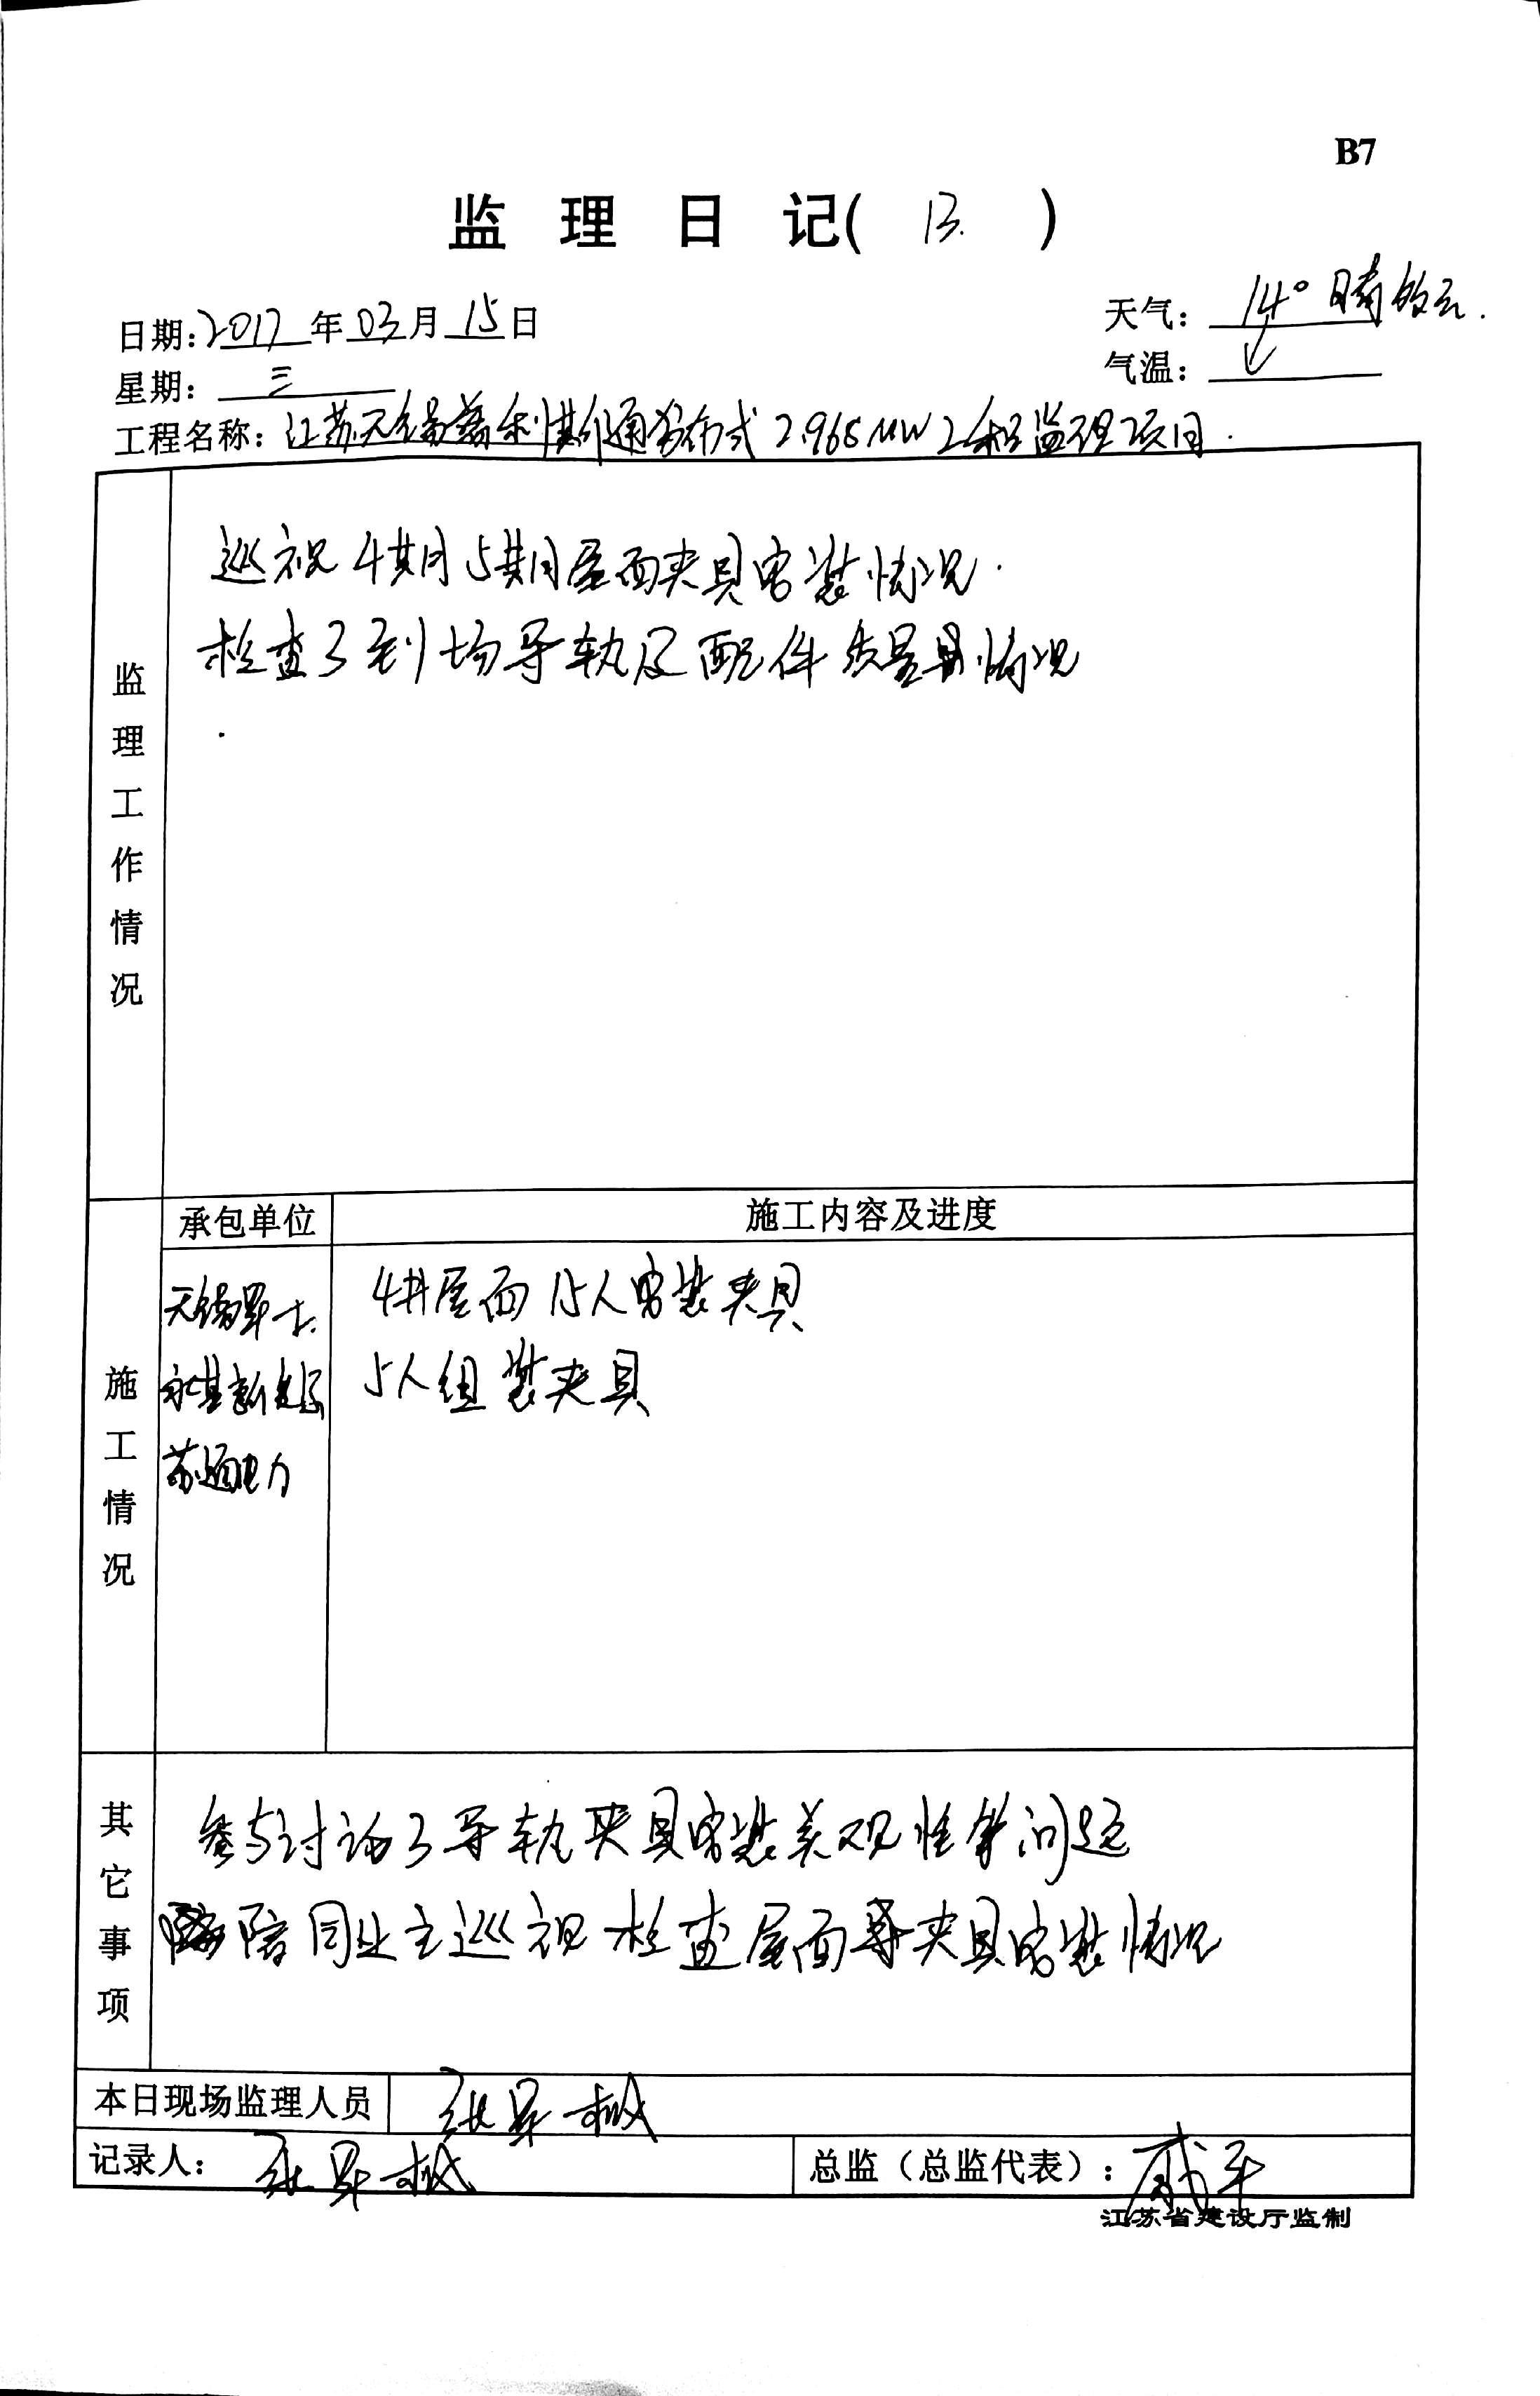 B7
监理日记( 13. )
日期:2017年03月15日
天气: 14° 晴
星期: 三
气温:
工程名称: 江苏无锡利斯通分布式2.968MW工程监理项目.
监理工作情况
巡视4期5期屋面夹具安装情况.
检查了到场导轨及配件质量情况
施工情况
承包单位
施工内容及进度
无锡昇
永基新能源
苏通电力
4#屋面15人安装夹具
5人组装夹具
其它事项
参与讨论了导轨夹具安装美观性等问题
陪同业主巡视检查屋面夹具安装情况
本日现场监理人员 张
记录人: 张
总监（总监代表）: 戚平
江苏省建设厅监制